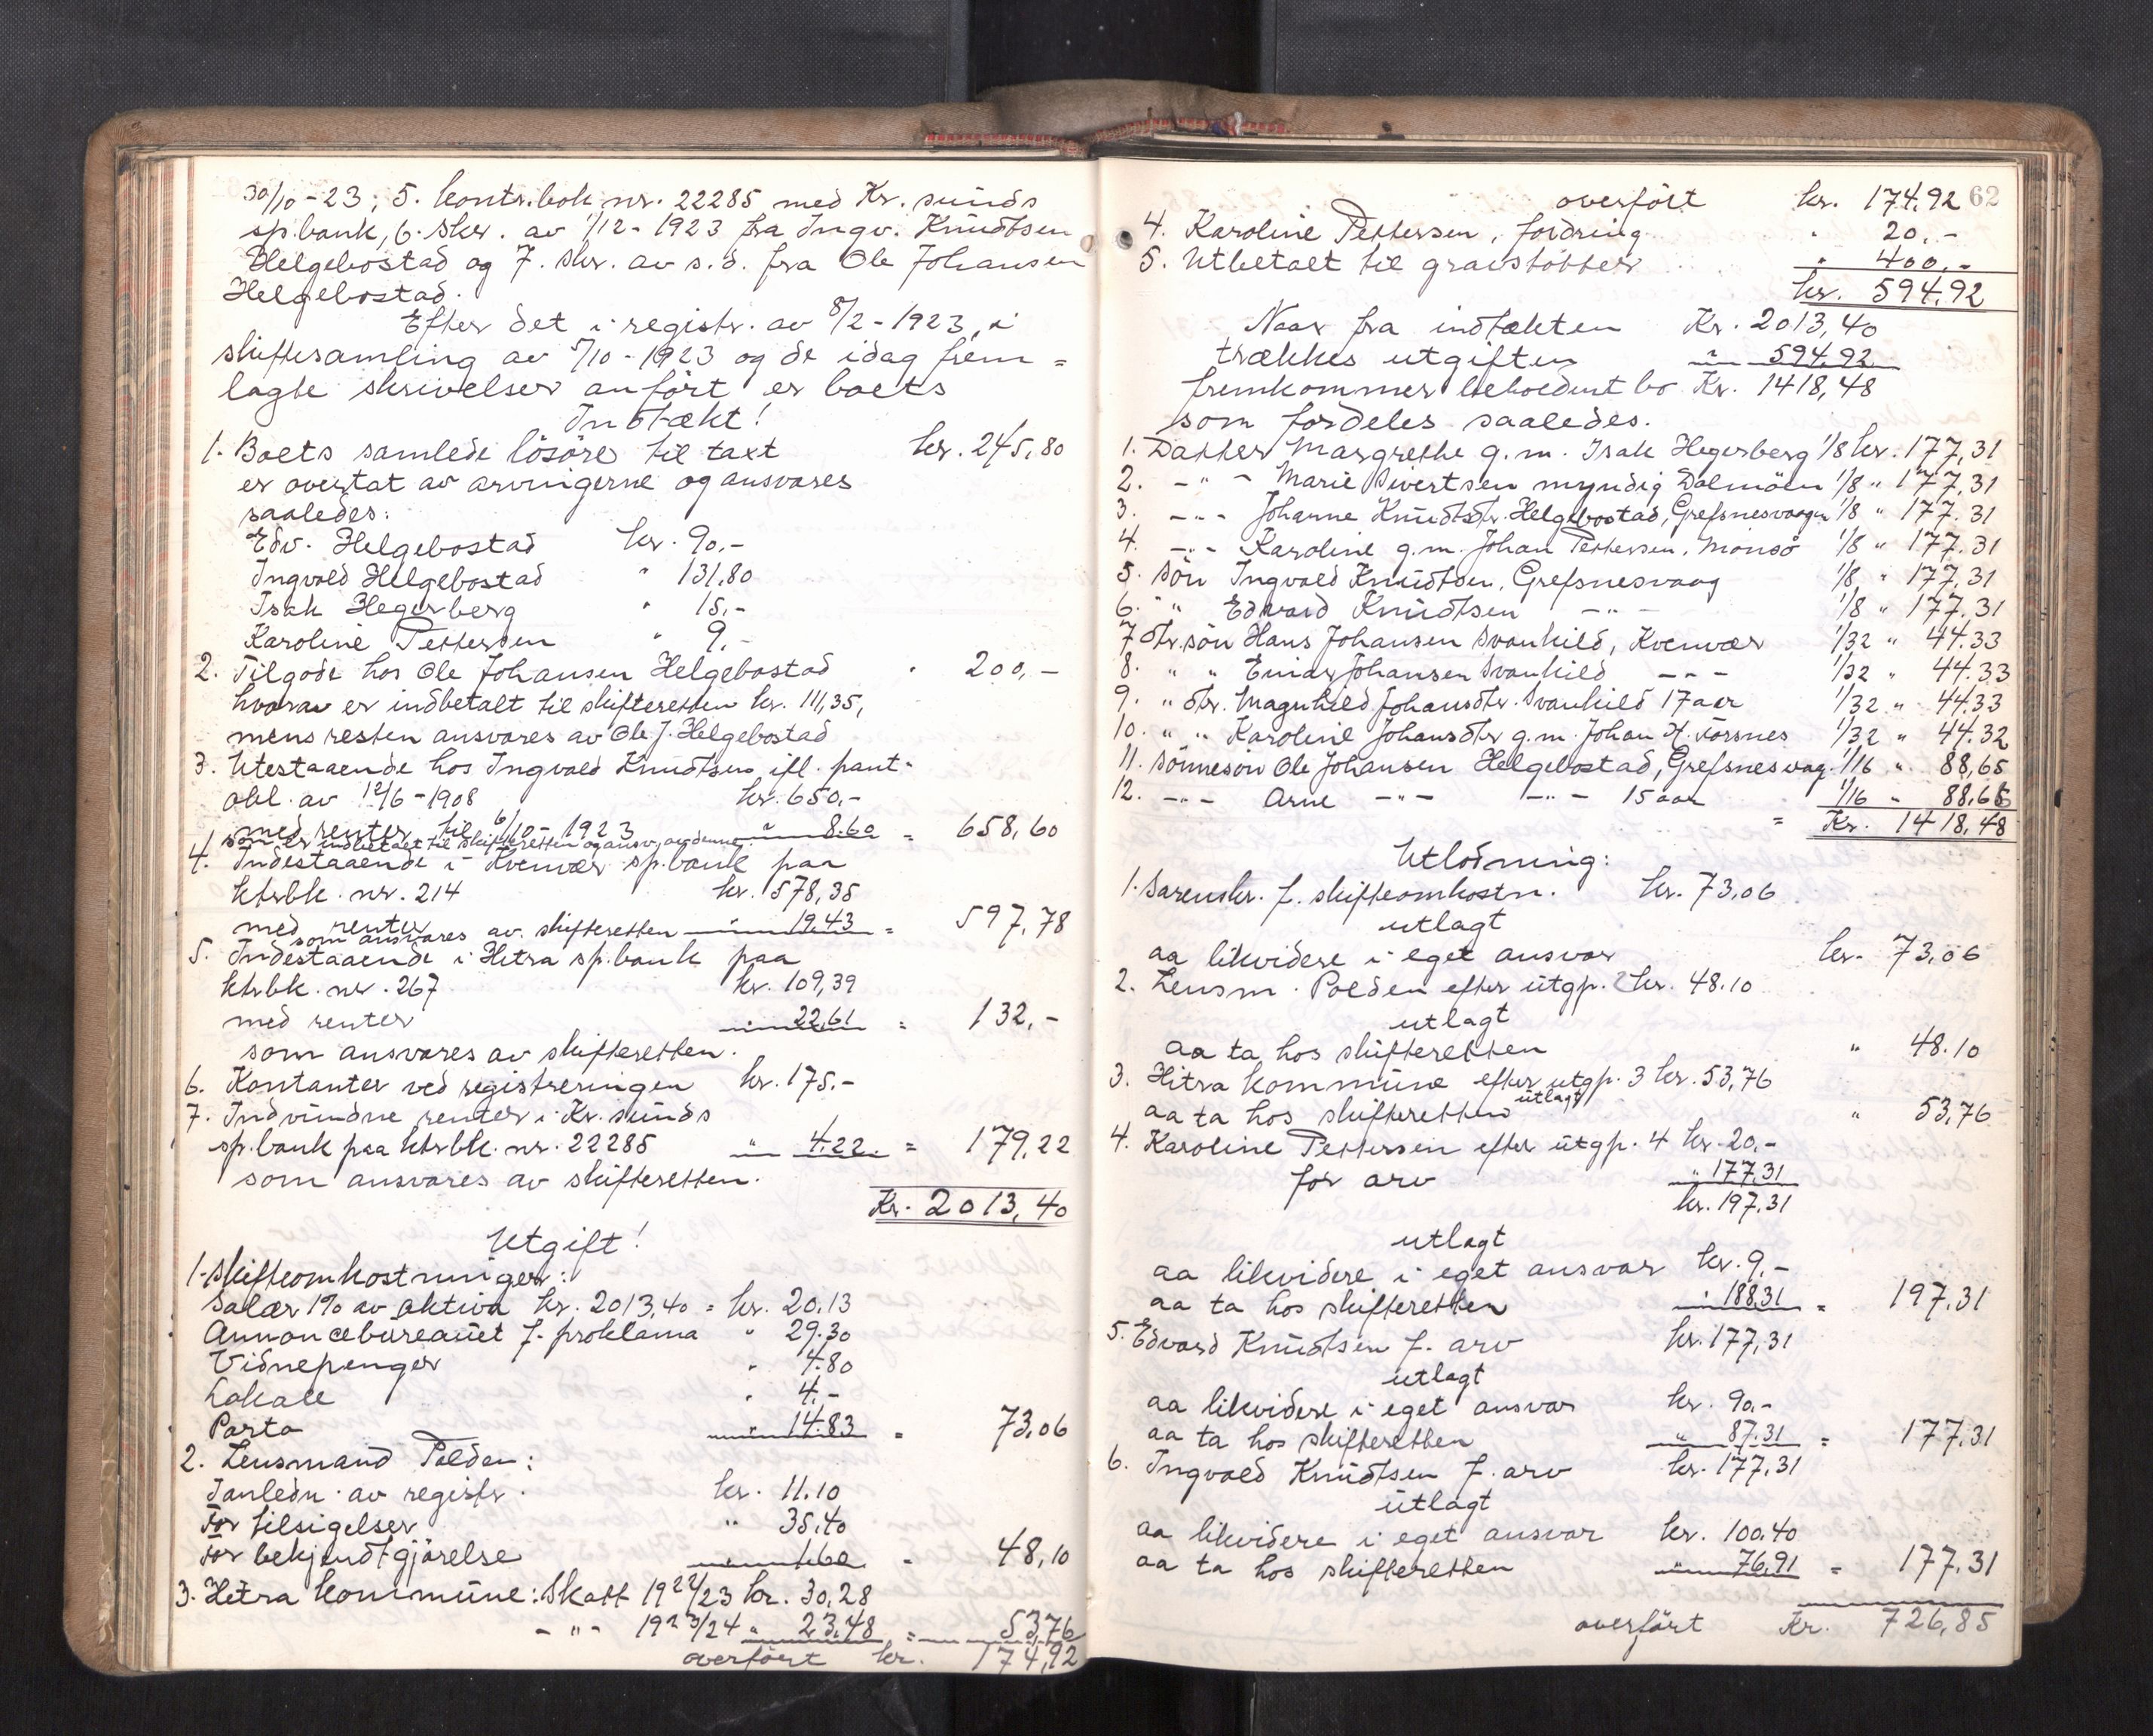 30/10-23, 5. kontr.bok nr. 22285 med Kr. sunds
sp.bank, 6. skr. av 1/12-1923 fra Ingv. Knudtsen
Helgebostad og 7. skr. av s.d. fra Ole Johansen
Helgebostad.
Efter det i registr. av 8/2-1923, i
skiftesamling av 5/10-1923 og de idag frem=
lagte skrivelser anført er boets
Indtækt!
1. Boets samlede løsøre til taxt kr. 245,80
er overtat av arvingerne og ansvares
saaledes:
Edv. Helgebostad kr. 90,-
Ingvald Helgebostad " 131,80
Isak Hegerberg " 15,-
Karoline Pettersen " 9,-
2. Tilgode hos Ole Johansen Helgebostad " 200,-
hvorav er indbetalt til skifteretten kr. 111,35,
mens resten ansvares av Ole J. Helgebostad
3. Utestaaende hos Ingvald Knudtsen ifl. pant-
obl. av 12/6-1908 kr. 650,-
med renter til 6/10-1923 " 8.60 = 658,60
som er indbetalt til skifteretten og ansv. av denne.
4. Indestaaende i Kvenvær sp.bank paa
ktrbk. nr. 214 kr. 578,35
med renter " 19.43 = 597,78
som ansvares av skifteretten
5. Indestaaende i Hitra sp.bank paa
ktrbk. nr. 267 kr. 109,39
med renter " 22,61 = 132,-
som ansvares av skifteretten.
6. Kontanter ved registreringen kr. 175,-
7. Indvundne renter i Kr. sunds
sp.bank paa ktrbk. nr. 22285 " 4.22. = 179,22
som ansvares av skifteretten.
Kr. 2013,40
Utgift!
1. Skifteomkostninger:
Salær 1% av aktiva kr. 2013,40 = kr. 20.13
Annoncebureauet f. proklama " 29.30
Vidnepenger " 4.80
Lokale " 4,-
Porto " 14.83 = 73,06
2. Lensmand Polden:
I anledn. av registr. kr. 11.10
For tilsigelser " 35.40
For bekjendtgjørelse " 1.60 = 48,10
3. Hitra kommune: Skatt 1922/23 kr. 30,28
- " - 1923/24 " 23,48 = 53,76
overført kr. 174,92
62
overført kr. 174,92
4. Karoline Pettersen, fordring " 20,-
5. Utbetalt til gravstøtter " 400,-
kr. 594,92
Naar fra indtækten Kr. 2013,40
trækkes utgiften " 594,92
fremkommer beholdent bo Kr. 1418,48
som fordeles saaledes.
1. Datter Margrethe g.m. Isak Hegerberg 1/8 kr. 177,31
2. - " - Marie Sivertsen myndig Dolmøen 1/8 " 177,31
3. - " - Johanne Knudtsdtr. Helgebostad, Grefsnesvaagen 1/8 " 177.31
4. - " - Karoline g.m. Johan Pettersen, Monsø 1/8 " 177.31
5. Søn Ingvald Knudtsen, Grefsnesvaag 1/8 " 177,31
6. " Edvard Knudtsen - " - 1/8 " 177.31
7. Dtr. søn Hans Johansen Svanhild, Kvenvær 1/32 " 44.33
8. " " Einar Johansen Svanhild - " - 1/32 " 44.33
9. " dtr. Magnhild Johansdtr. Svanhild 17 aar 1/32 " 44.33
10. " " Karoline Johansdtr. g.m. Johan H. Forsnes 1/32 " 44.32
11. Sønnesøn Ole Johansen Helgebostad, Grefsnesvaag. 1/16 " 88,65
12. - " - Arne - " - - " - 15 aar 1/16 " 88,65
= Kr. 1418,48
Utlodning:
1. Sorenskr. f. skifteomkostn. kr. 73,06
utlagt
aa likvidere i eget ansvar kr. 73,06
2. Lensm. Polden efter utgp. 2 kr. 48.10
utlagt
aa ta hos skifteretten " 48.10
3. Hitra kommune efter utgp. 3 kr. 53,76
utlagt
aa ta hos skifteretten " 53,76
4. Karoline Pettersen efter utgp. 4 kr. 20,-
for arv " 177.31
kr. 197,31
utlagt
aa likvidere i eget ansvar kr. 9,-
aa ta hos skifteretten " 188.31 = 197,31
5. Edvard Knudtsen f. arv kr. 177,31
utlagt
aa likvidere i eget ansvar kr. 90,-
aa ta hos skifteretten " 87.31 = 177.31
6. Ingvald Knudtsen f. arv kr. 177,31
utlagt
aa likvidere i eget ansvar kr. 100.40
aa ta hos skifteretten " 76,91 = 177.31
overført Kr. 726,85